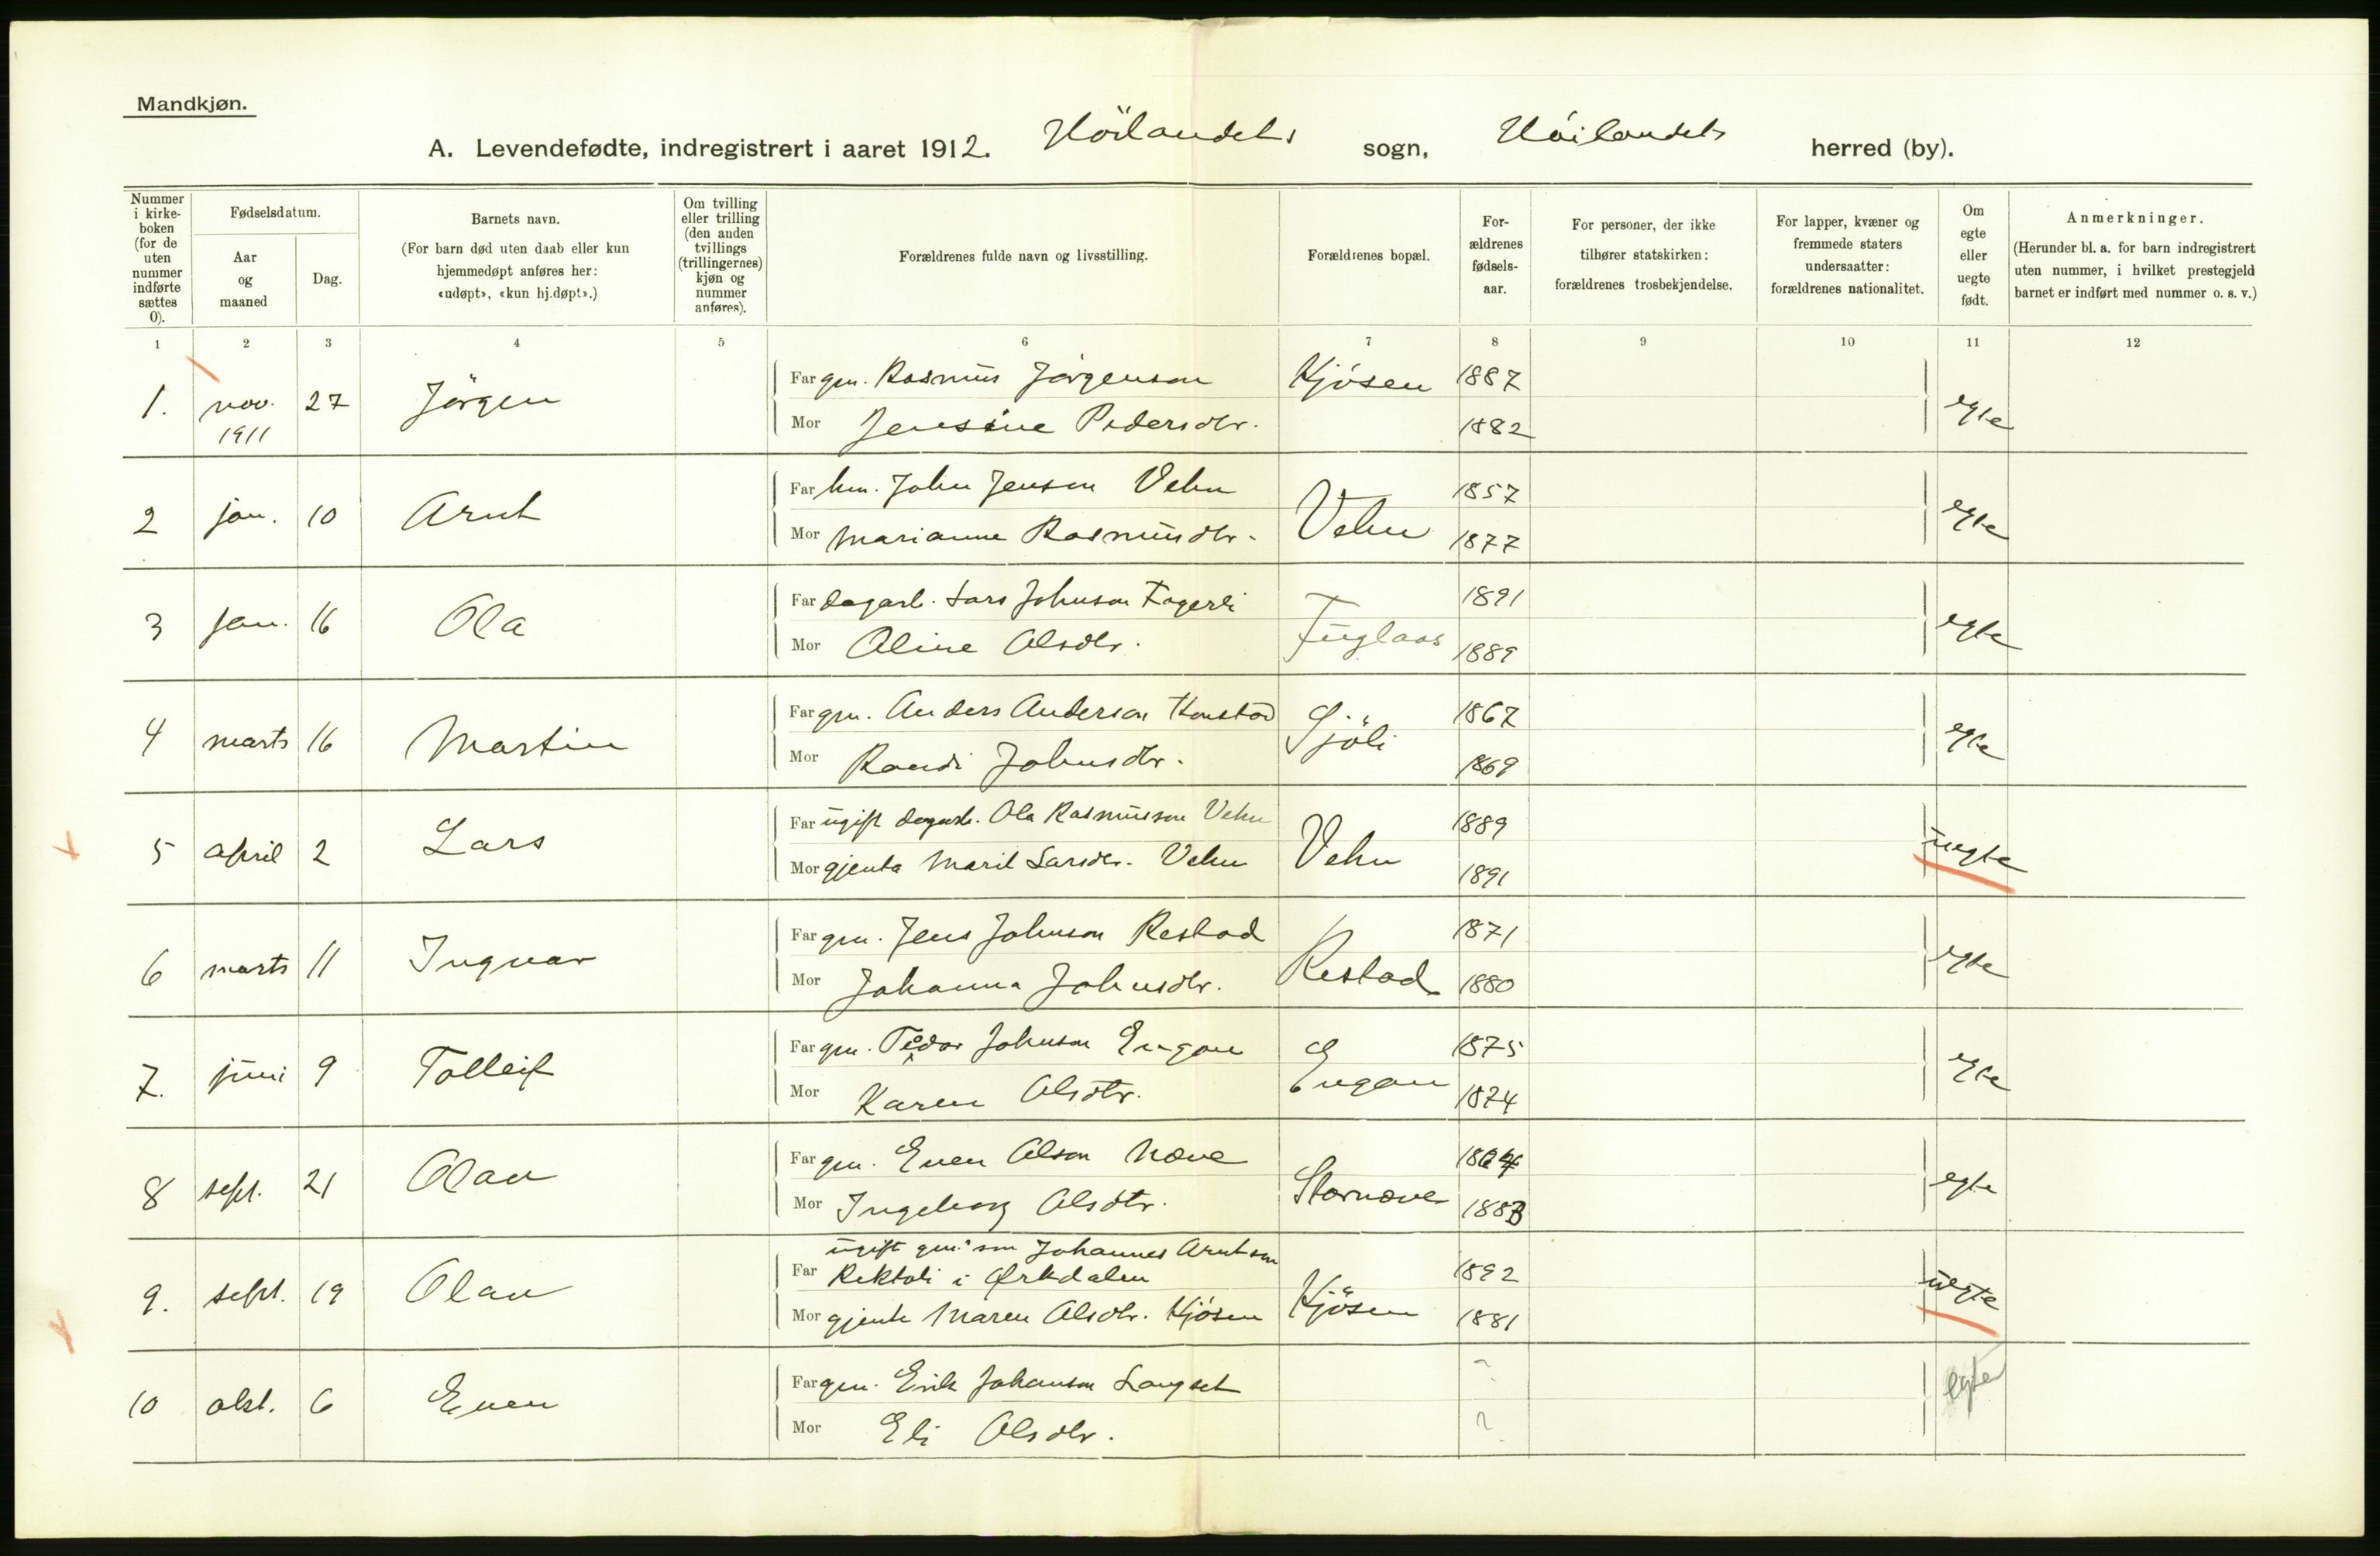 Mandkjøn.
A. Levendefødte, indregistrert i aaret 1912. Höilandets sogn, Höilandets herred (by).
Nummer i kirkeboken (for de uten nummer indførte sættes 0).
Fødselsdatum.
Aar og maaned
Dag.
Barnets navn.
(For barn død uten daab eller kun hjemmedøpt anføres her: «udøpt», «kun hj.døpt».)
Om tvilling eller trilling (den anden tvillings (trillingernes) kjøn og nummer anføres).
Forældrenes fulde navn og livsstilling.
Forældrenes bopæl.
Forældrenes fødselsaar.
For personer, der ikke tilhører statskirken: forældrenes trosbekjendelse.
For lapper, kvæner og fremmede staters undersaatter: forældrenes nationalitet.
Om egte eller uegte født.
Anmerkninger.
(Herunder bl. a. for barn indregistrert uten nummer, i hvilket prestegjeld barnet er indført med nummer o. s. v.)
1 2 3 4 5 6 7 8 9 10 11 12
1. nov. 1911 27 Jörgen Far gm. Rasmus Jörgenson Kjösen 1887 egte
Mor Jensine Pedersdtr. 1882
2 jan. 10 Arnt Far km. John Jenson Vehn Vehn 1857 egte
Mor Marianne Rasmusdtr. 1877
3 jan. 16 Ola Far dagarb. Lars Johnson Fagerli Fuglaas 1891 egte
Mor Oline Olsdtr. 1889
4 marts 16 Martin Far gm. Anders Anderson Sjöli 1867 egte
Mor Randi Johnsdtr. 1869
5 april 2 Lars Far ugift dagarb. Ola Rasmusson Vehn Vehn 1889 uegte
Mor gjenta Marit Larsdtr. Vehn 1891
6 marts 11 Ingvar Far gm. Jens Johnson Restad Restad 1871 egte
Mor Johanna Johnsdtr. 1880
7. juni 9 Tolleif Far gm. Peder Johnson Engan Engan 1875 egte
Mor Karen Olsdtr. 1874
8 sept. 21 Olav Far gm. Even Olson Næve Stornæve 1864 egte
Mor Ingeborg Olsdtr. 1883
9. sept. 19 Olav ugift gm. søn Johannes Arntson
Far i Ørkdalen Kjösen 1892 uegte
Mor gjente Maren Olsdtr. Kjösen 1881
10 okt. 6 Even Far gm. Erik Johanson Langset ? egte
Mor Eli Olsdtr. ?